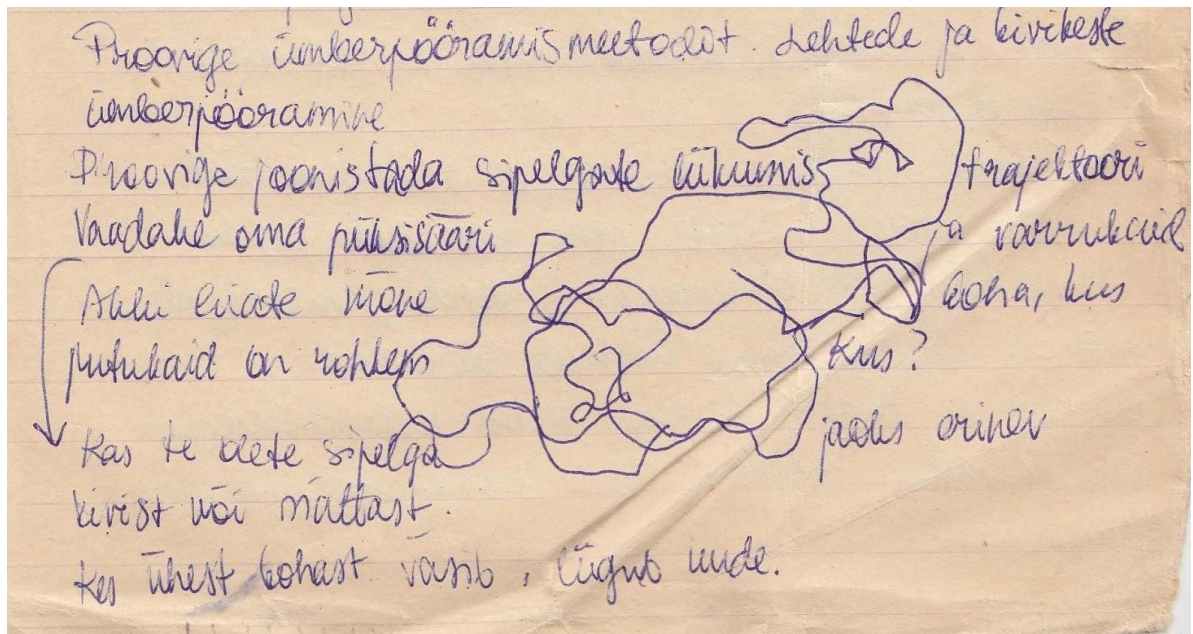 Proovige ümberpööramismeetodit. Lehtede ja kivikeste
ümberpööramine
Proovige joonistada sipelgate liikumis trajektoori
Vaadake oma püksisääri ja varrukaid
Äkki leiate mõne koha, kus
putukaid on rohkem Kus?
Kas te olete sipelga jaoks erinev
kivist või mättast.
Kes ühest kohast väsib, liigub uude.